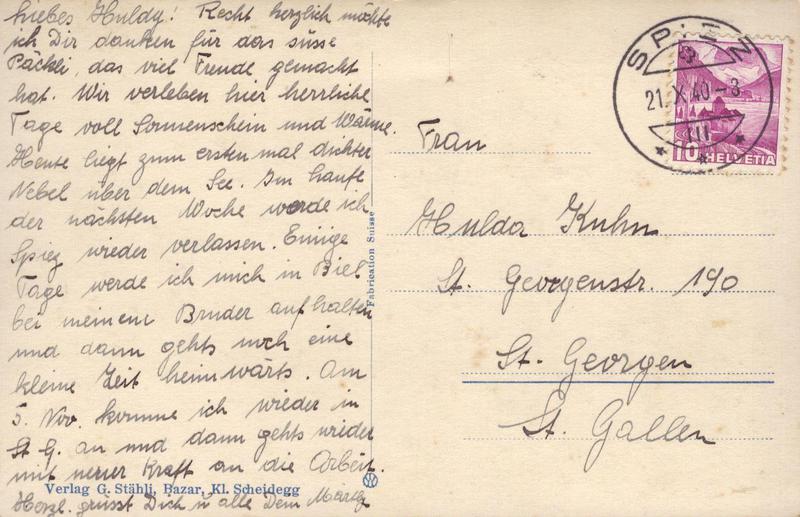 Liebes Huldy! Recht herzlich möchte
ich Dir danken für das süsse
Päckli, das viel Freude gemacht
hat. Wir verleben hier herrliche
Tage voll Sonnenschein und Wärme.
Heute liegt zum ersten mal dichter
Nebel über dem See. Im Laufe
der nächsten Woche werde ich
Spiez wieder verlassen. Einige
Tage werde ich mich in Biel
bei meinem Bruder aufhalten
und dann gehts noch eine
kleine Zeit heimwärts. Am
5. Nov. komme ich wieder in
St. G. an und dann gehts wieder
mit neuer Kraft an die Arbeit.
Herzl. grüsst Dich u alle Dein
Verlag G. Stähli, Bazar, Kl. Scheidegg
Fabrication Suisse
SPIEZ
21.X.40-3
III
10 HELVETIA
Frau
Hulda Kuhn
St. Georgenstr. 190
St. Georgen
St. Gallen